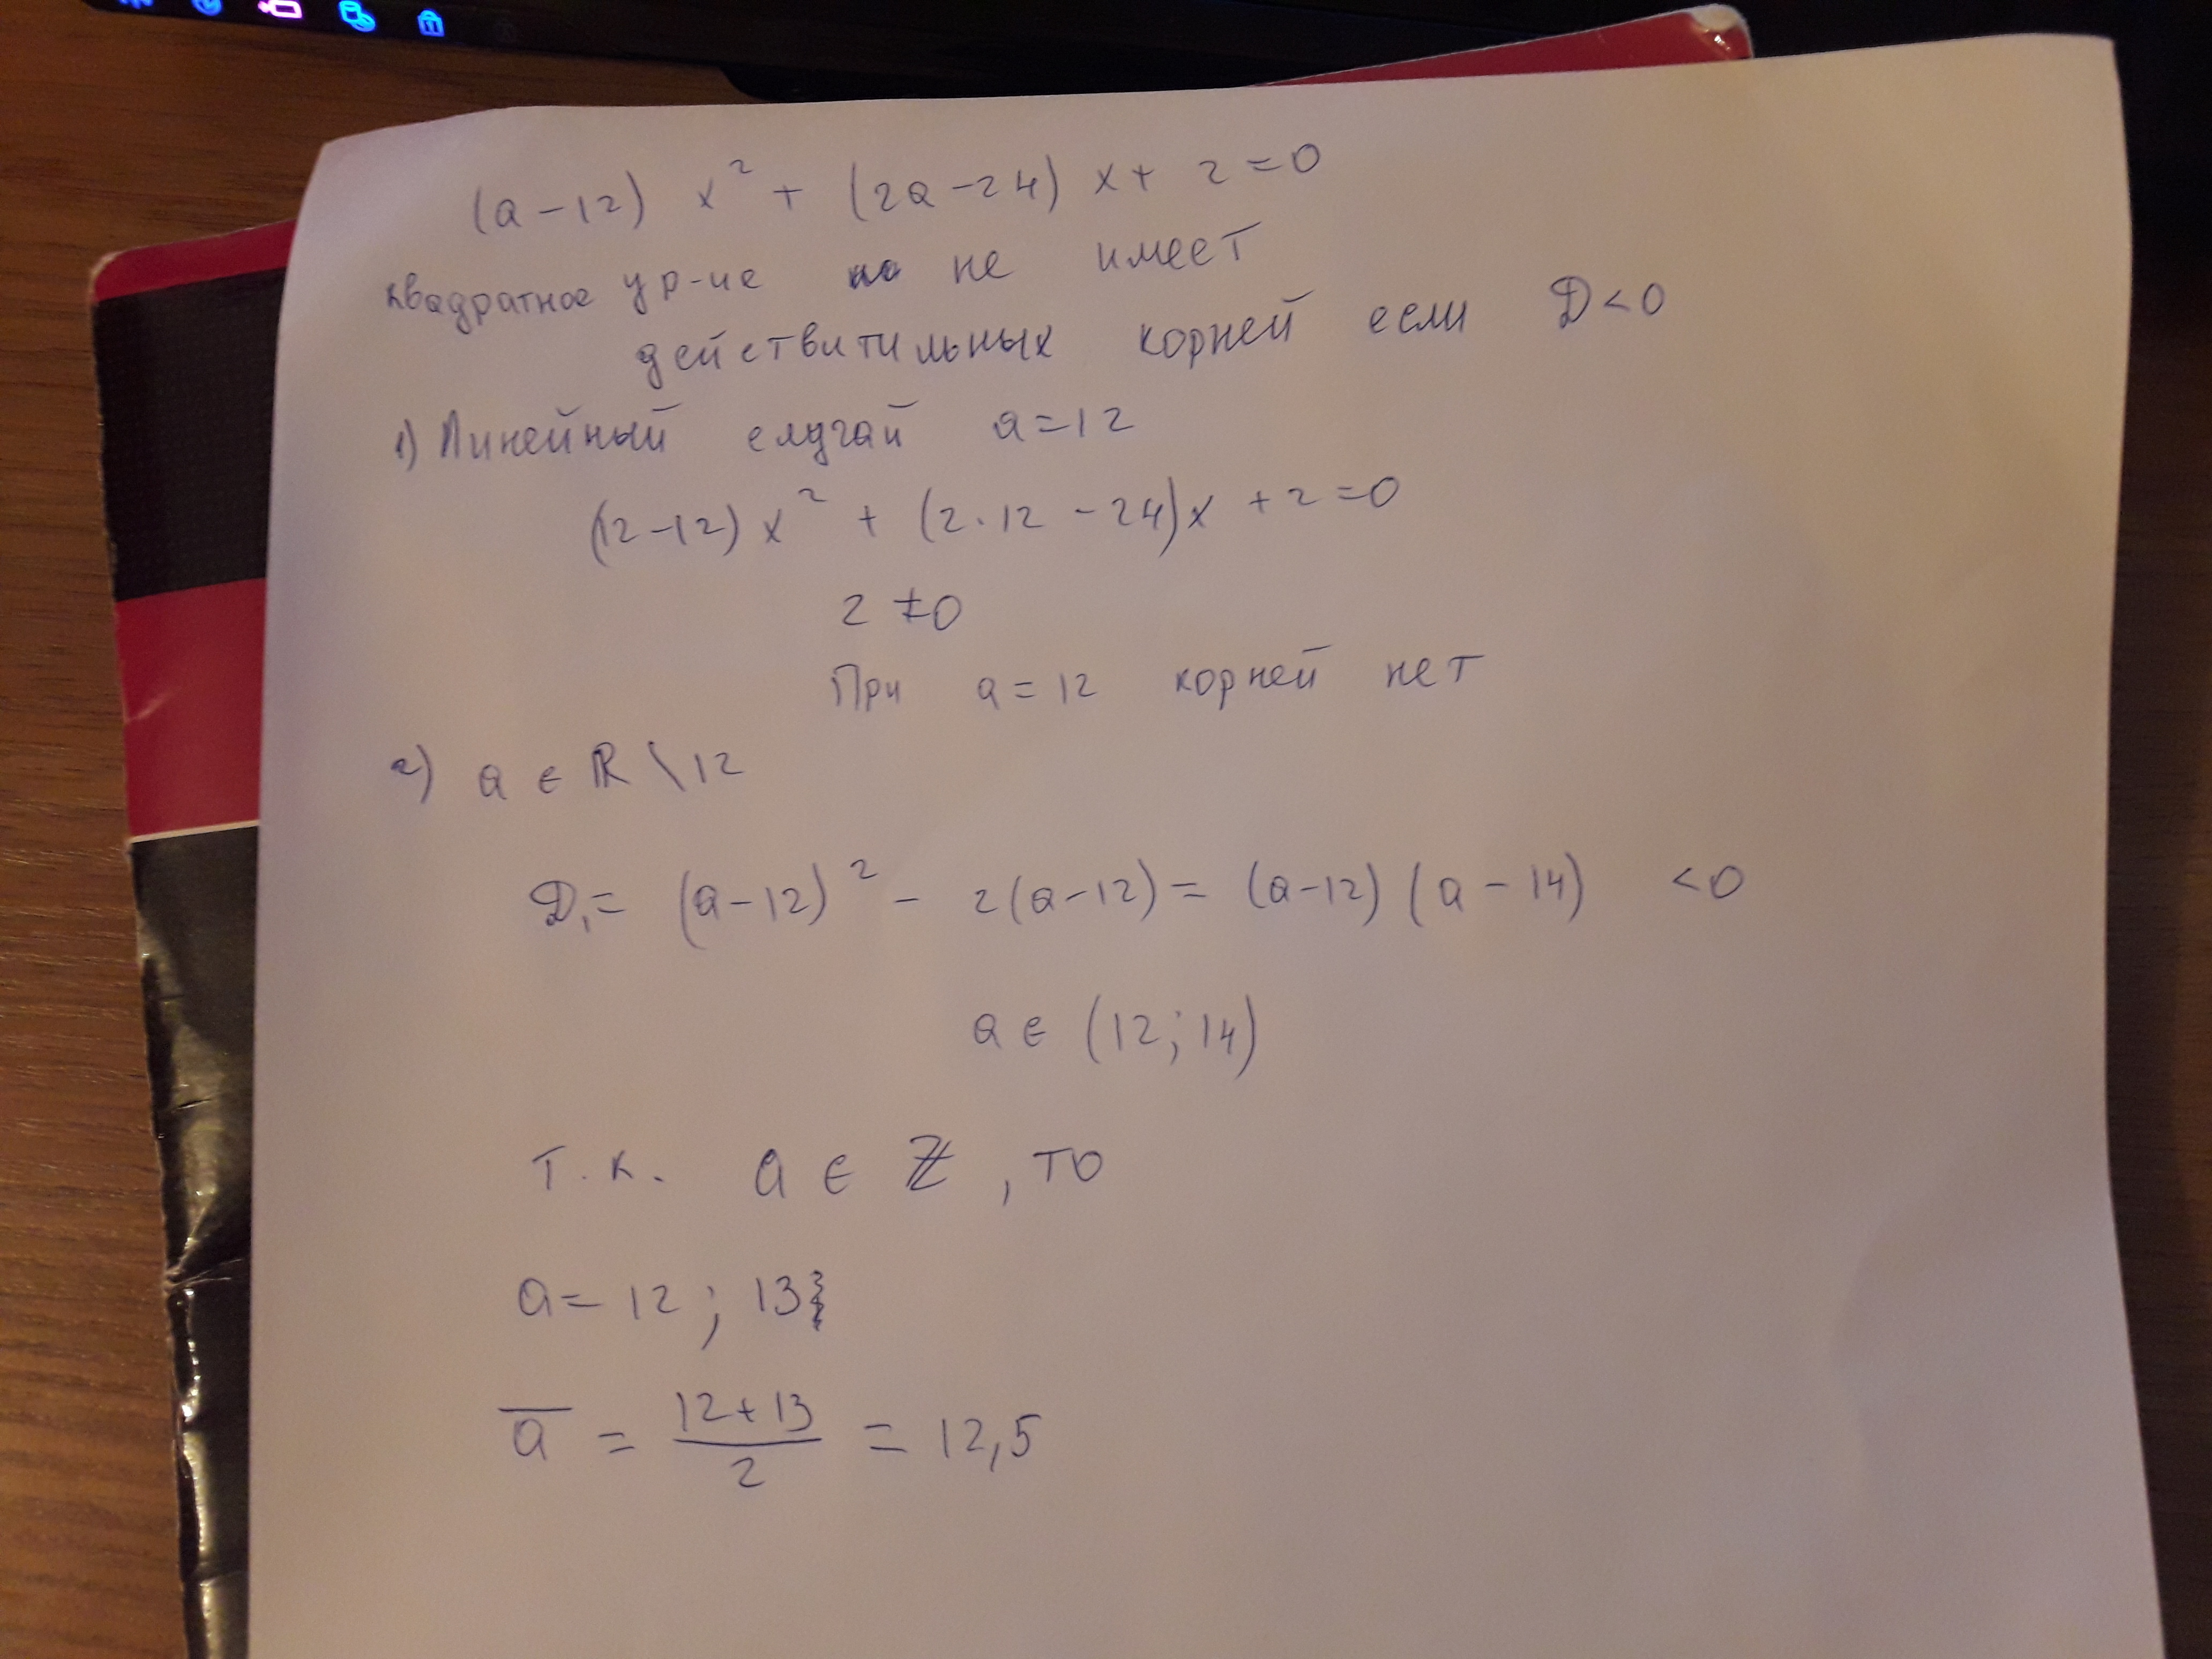 (a-12) x² + (2a-24) x + 2=0
квадратное ур-ие не имеет
действитильных корней если D<0
1) Линейный случай a=12
(12-12) x² + (2·12 - 24)x + 2=0
2 ≠0
При a=12 корней нет
2) a ∈ ℝ \ 12
D₁= (a-12)² - 2(a-12) = (a-12) (a-14) <0
a ∈ (12; 14)
т.к. a ∈ ℤ, то
a= 12; 13
a̅ = (12+13)/2 = 12,5